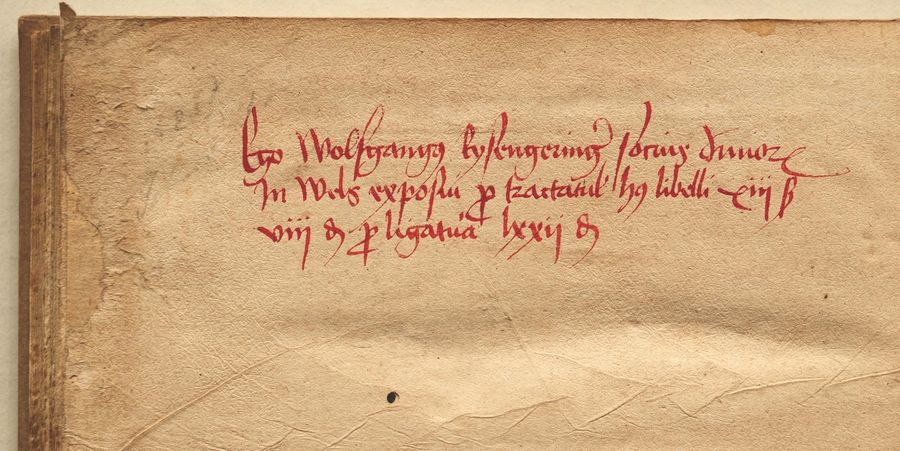 Ego Wolfgangꝯ Eysengering̕ sociꝯ diuioꝝ
In Wels exposui ꝓ tractatul̕ hꝯ libelli xiij ß
viij ₰ ꝓ ligatu̕a lxxij ₰